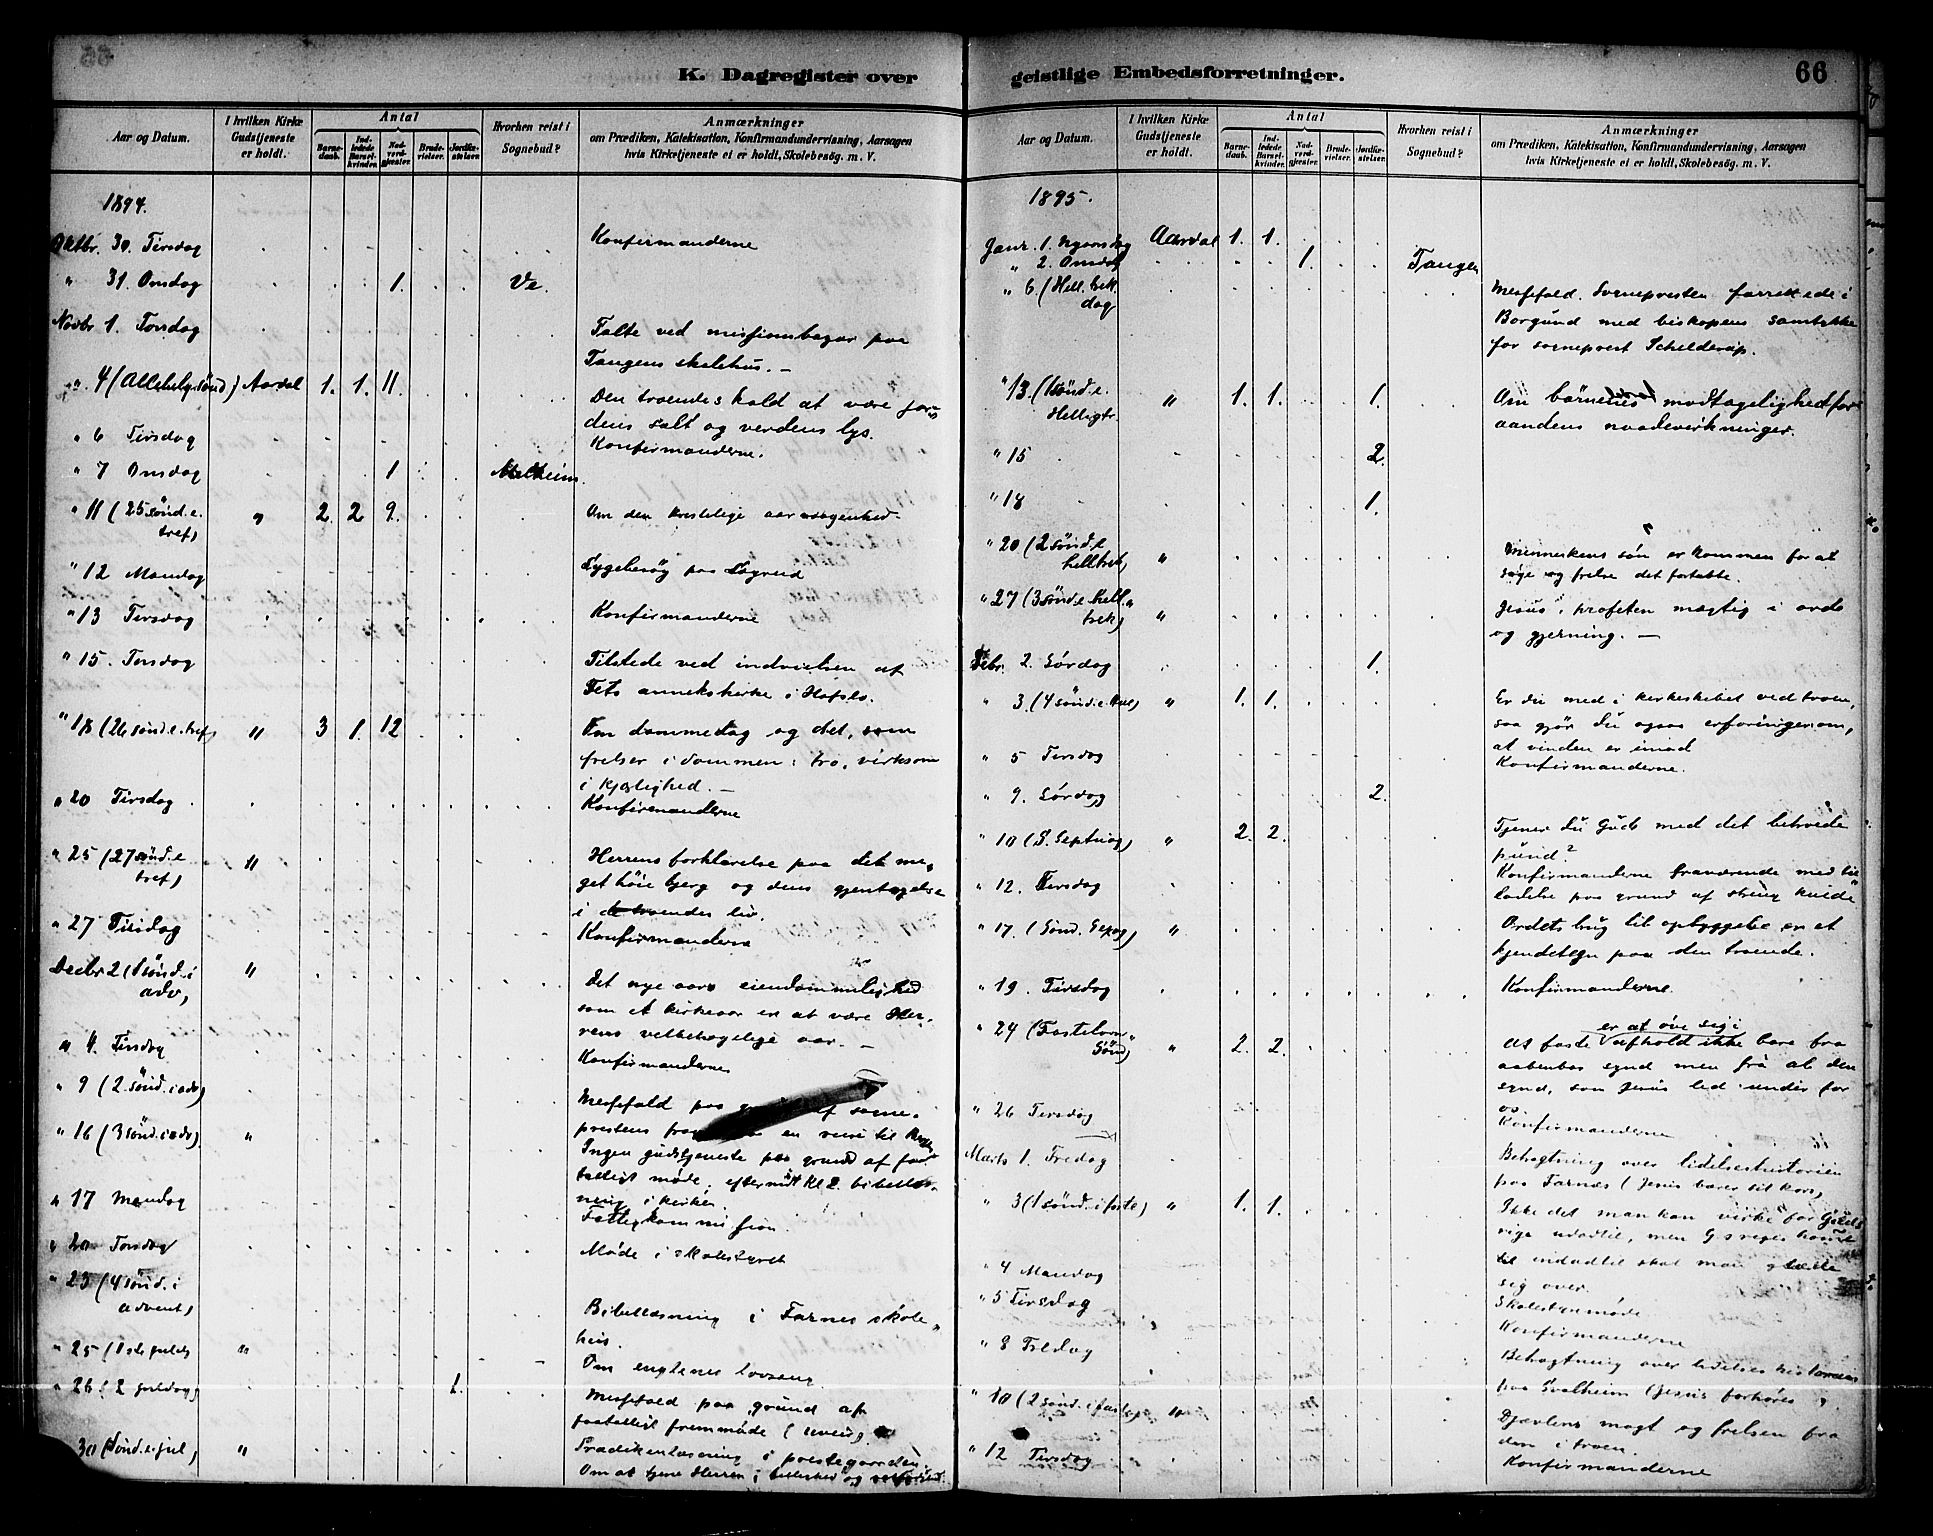 K. Dagregister over
Aar og Datum.
I hvilken Kirke Gudstjeneste er holdt.
Antal
Barnedaab.
Indledede Barselkvinder.
Nadverdgjester.
Brudevielser.
Jordfæstelser.
Hvorhen reist i Sognebud?
Anmærkninger
om Prædiken, Katekisation, Konfirmandundervisning, Aarsagen
hvis Kirketjeneste ei er holdt, Skolebesøg. m. V.
1894.
Oktbr. 30. Tirsdag Konfirmanderne
" 31. Onsdag 1. Ve.
Novbr 1. Torsdag Talte ved missionsbazar paa
Tangens skolehus. —
" 4 (Allehelg. sønd) Aardal 1. 1. 11. Den troendes kald at være jor-
dens salt og verdens lys.
" 6 Tirsdag Konfirmanderne.
" 7 Onsdag 1 Melheim.
" 11 (25 sønd. e. tref) " 2. 2 9. Om den kristelige aarvaagenhed.
" 12 Mandag Sygebesøg paa
" 13 Tirsdag Konfirmanderne
" 15. Torsdag Tilstede ved indvielsen af
Fets annekskirke i Hafslo.
" 18 (26 sønd. e. tref) " 3 1. 12 Om dommedag og det, som
frelser i dommen: tro, virksom
i kjærlighed. —
" 20 Tirsdag Konfirmanderne
" 25 (27 sønd. e tref) " Herrens forklarelse paa det me-
get høie bjerg og dens gjentagelse
i de troendes liv.
" 27 Tirsdag Konfirmanderne
Decbr 2 (1 sønd. i adv) " Det nye aars eiendommelighed
som et kirkeaar er at være Her-
rens velbehagelige aar. —
" 4. Tirsdag Konfirmanderne
" 9 (2. sønd. i adv) Messefald paa af sogne-
prestens en reise til
" 16 (3 sønd. i adv) " Ingen gudstjeneste paa grund af faa-
talligt møde; eftermitt kl 2. bibellæs-
ning i kirken.
" 17 Mandag Fattigkommission.
" 20 Torsdag Møde i skolestyret
" 23 (4 sønd. i advent) Bibellæsning i Farnes skole-
hus.
" 25 (1ste juledg " Om englenes lovsang.
" 26 (2 juledag) 1. Messefald paa grund af
faatalligt fremmøde (uveir).
Prædikenlæsning i prestegaarden.
30 (Sønd. e. jul) " Om at tjene Herren i
geistlige Embedsforretninger.
66
Aar og Datum.
I hvilken Kirke Gudstjeneste er holdt.
Antal
Barnedaab.
Indledede Barselkvinder.
Nadverdgjester.
Brudevielser.
Jordfæstelser.
Hvorhen reist i Sognebud?
Anmærkninger
om Prædiken, Katekisation, Konfirmandundervisning, Aarsagen
hvis Kirketjeneste ei er holdt, Skolebesøg. m. V.
1895.
Janr. 1. Nyaarsdag Aardal 1. 1.
" 2. Onsdag 1. Tangen
" 6. (Hell. trek. dag Messefald. Sognepresten forrettede i
Borgund med biskopens samtykke
for sogneprest Schelderup.
" 13 (1 sønd. e. Helligtr. " 1. 1. 1. Om børnenes modtagelighed for
aandens naadevirkninger.
" 15 2.
" 18 1.
" 20 (2 sønd. e helltrek) " Menneskens søn er kommen for at
søge og frelse det fortabte.
" 27 (3 sønd. e hell. trek) " Jesus, profeten mægtig i ord
og gjerning. —
Febr. 2. Lørdag 1.
" 3. (4 sønd. e. hel) " 1. 1. Er du med i kirkeskibet ved troen,
saa gjør du ogsaa erfaringer om,
at vinden er imod
" 5 Tirsdag Konfirmanderne.
" 9. Lørdag 2.
" 10 (S. Septuag) " 2. 2. Tjener du Gud med det betroede
pund?
" 12. Tirsdag Konfirmanderne fraværende med til-
ladelse paa grund af streng kulde
" 17. (Sønd. Sexag) " Ordets brug til opbyggelse er et
kjendetegn paa den troende.
" 19. Tirsdag Konfirmanderne.
" 24 (Fastelavns Sønd) " 2. 2. At faste er at øve sig i afhold ikke bare fra
aabenbar synd men fra al den
synd, som Jesus led under for
os
" 26 Tirsdag Konfirmanderne
Marts 1. Fredag Betragtning over lidelseshistorien
paa Farnæs (Jesus bærer sit kors)
" 3 (1 sønd. i faste) " 1. 1. Ikke det man kan virke for Guds
rige udadtil, men
til indadtil skal man glæde
sig over.
" 4 Mandag Skolestyremøde
" 5 Tirsdag Konfirmanderne
" 8 Fredag Betragtning over lidelseshistorien
paa Svalheim (Jesus forhøres).
" 10 (2 sønd. i faste) " Djævlens magt og frelsen fra
den i troen.
" 12 Tirsdag Konfirmanderne